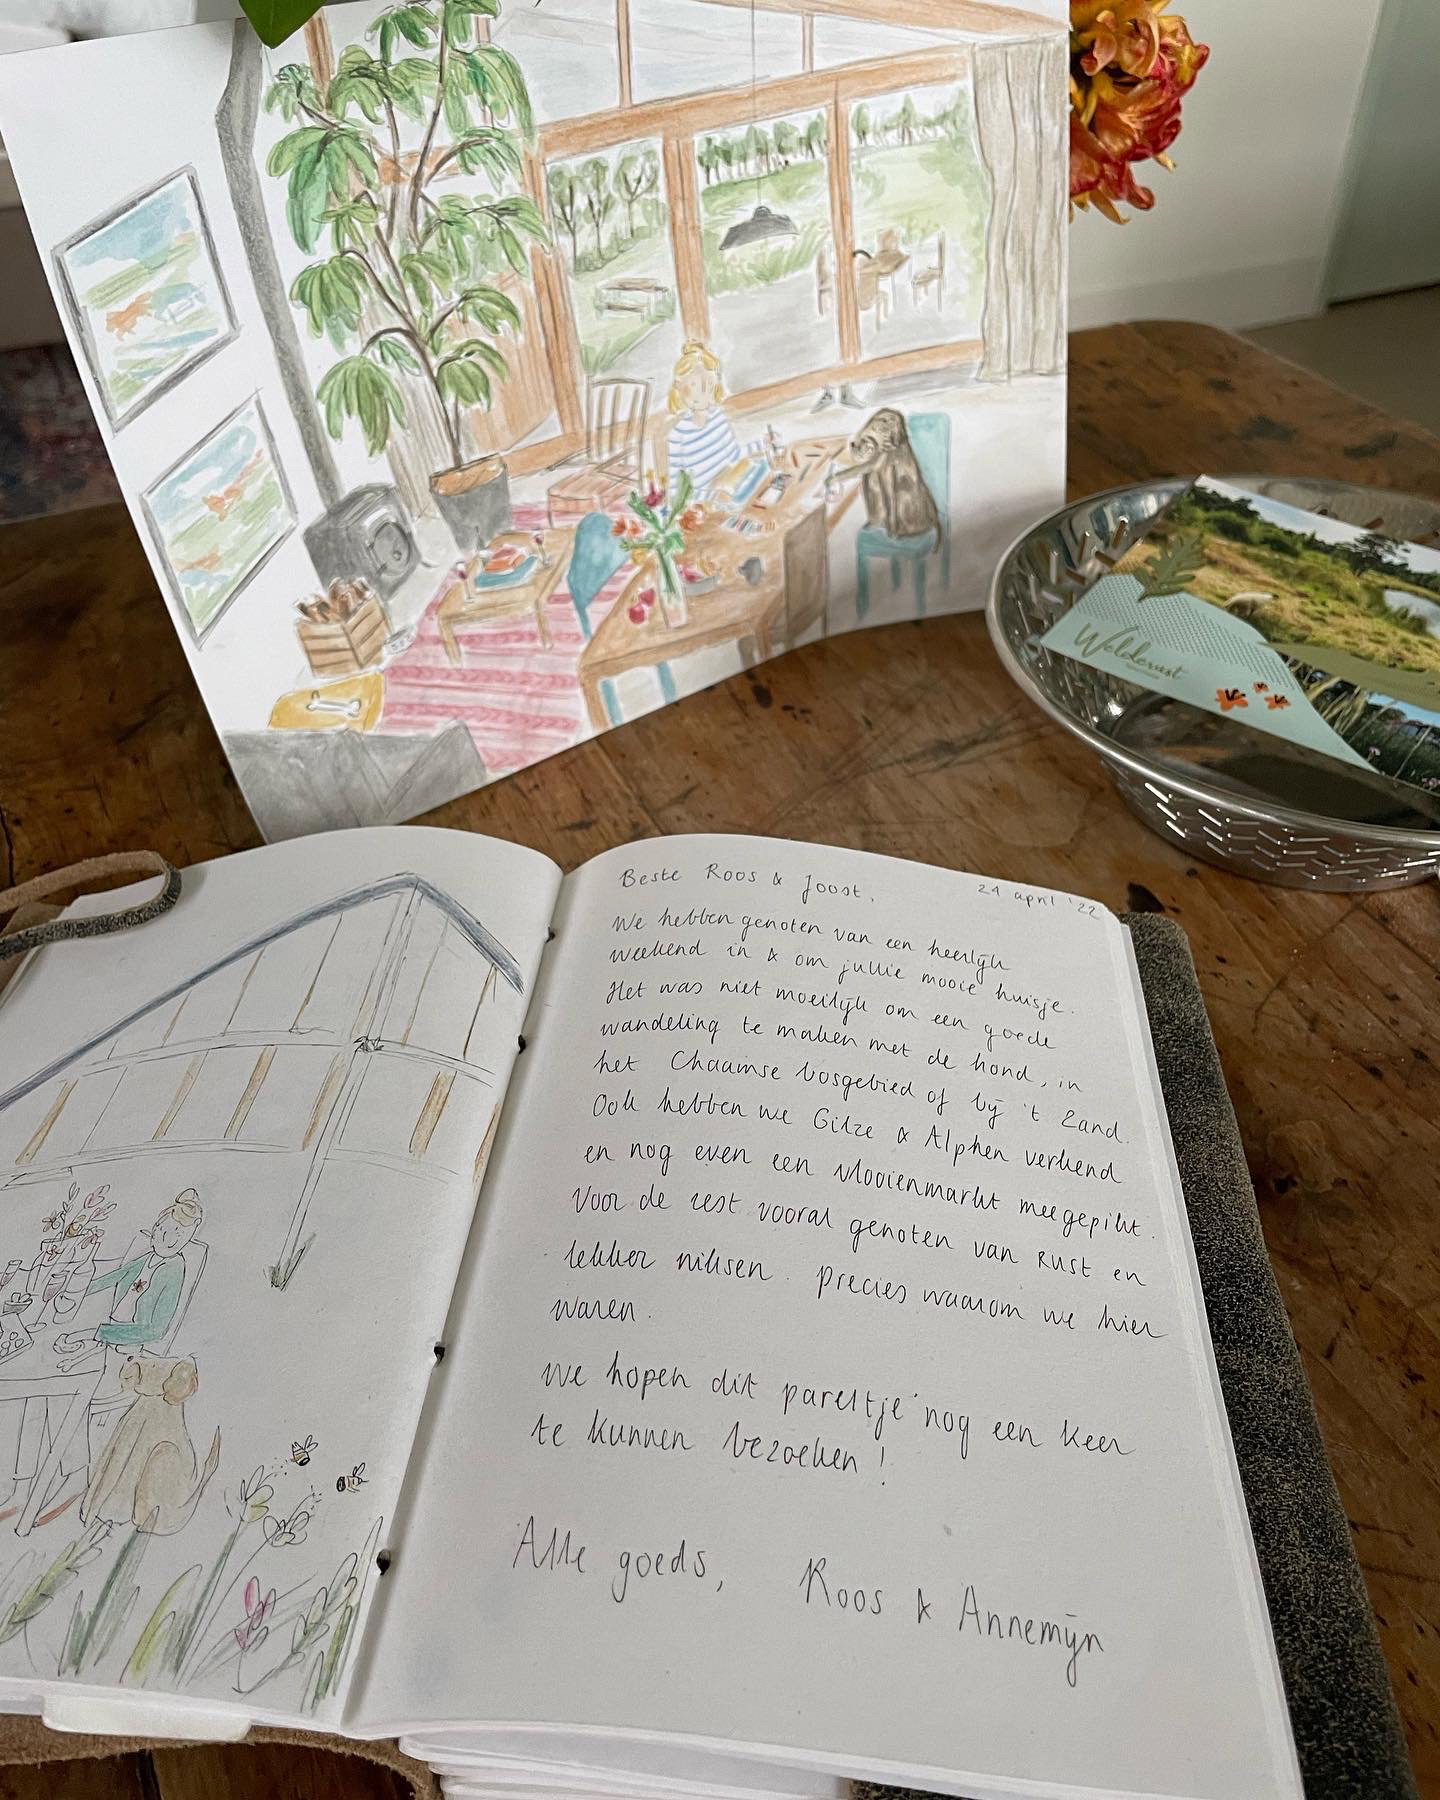 Welderust
Beste Roos & Joost,
24 april '22
We hebben genoten van een heerlijk
weekend in & om jullie mooie huisje.
Het was niet moeilijk om een goede
wandeling te maken met de hond, in
het Chaamse bosgebied of bij 't Zand.
Ook hebben we Gilze & Alphen verkend
en nog even een vlooienmarkt meegepikt.
Voor de rest vooral genoten van rust en
lekker niksen. Precies waarom we hier
waren.
We hopen dit pareltje nog een keer
te kunnen bezoeken!
Alle goeds, Roos & Annemijn